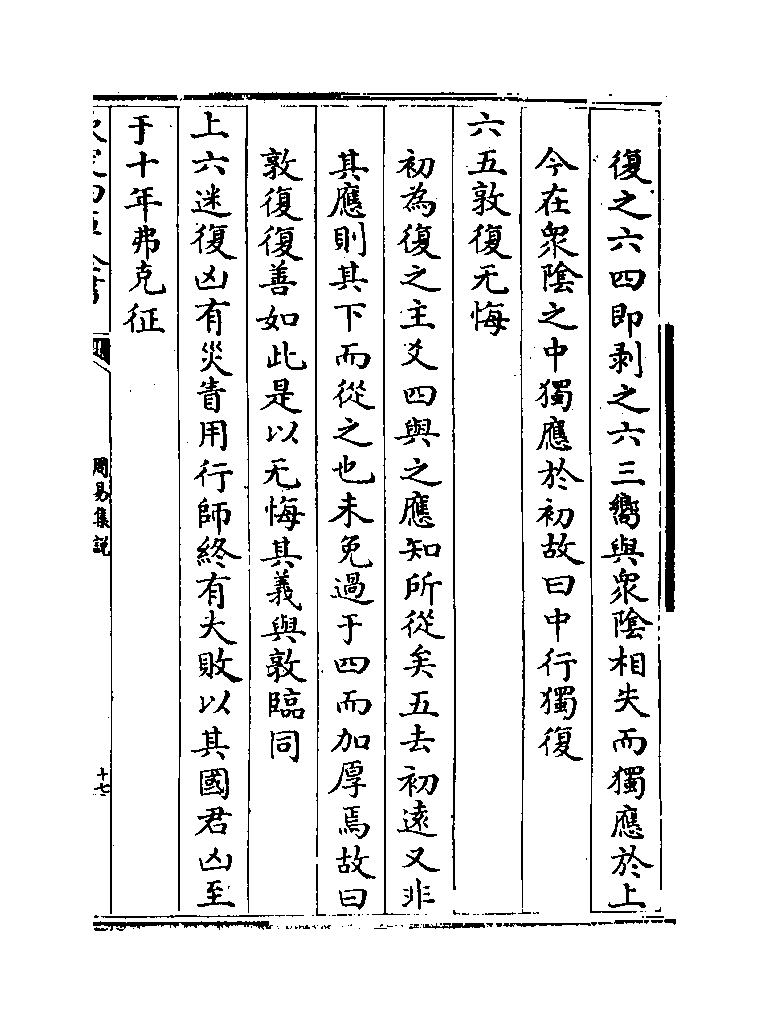 復之六四即剥之六三嚮與衆陰相失而獨應於上
今在衆陰之中獨應於初故曰中行獨復
六五敦復无悔
初為復之主爻四與之應知所從矣五去初逺又非
其應則其下而從之也未免過于四而加厚焉故曰
敦復復善如此是以无悔其義與敦臨同
上六迷復凶有災眚用行師終有大敗以其國君凶至
于十年弗克征
周易集説
十七